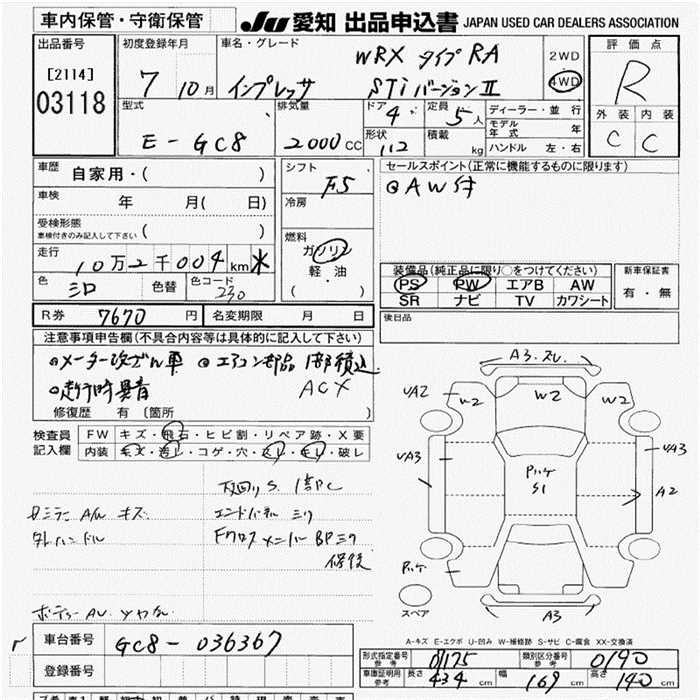 車内保管・守衛保管
JU 愛知 出品申込書 JAPAN USED CAR DEALERS ASSOCIATION
出品番号
[2114]
03118
初度登録年月
7 10月
車名・グレード
インプレッサ
WRX タイプRA
STi バージョンⅡ
2WD
4WD
評価点
R
外装 内装
C C
型式
E-GC8
排気量
2000cc
ドア 4
形状 112
定員 5人
積載 kg
ディーラー・並行
モデル年式 年
ハンドル 左・右
車歴
自家用・( )
車検
年 月( 日)
受検形態
車検付きのみ記入して下さい ( )
走行
10万2千004km
色 色替 色コード
230
シフト
F5
冷房
燃料
ガソリン
軽・油
( )
セールスポイント(正常に機能するものに限ります)
◎AW付
装備品(純正品に限り○をつけてください)
PS PW エアB AW
SR ナビ TV カワシート
新車保証書
有・無
後日品
R券 7670 円 名変期限 月 日
注意事項申告欄(不具合内容等は具体的に記入して下さい)
◎メーター改ざん車 ◎エアコン部品1部積込
◎走行時異音 ACX
修復歴 有 〔箇所
検査員記入欄
FW キズ・飛石・ヒビ割・リペア跡・X要
内装 キズ・汚し・コゲ・穴・スレ・キレ・破レ
下廻りS、1部C
エンドパネルミク
保後
A3
W2
W2
W2
UA2
UA3
UA3
A2
S1
A3
スペア
A-キズ E-エクボ U-凹み W-補修跡 S-サビ C-腐食 XX-交換済
車台番号 GC8-036367
登録番号
形式指定番号 参考 01175
類別区分番号 参考 0190
車庫証明用 参考 長さ 434cm 幅 169cm 高さ 140cm